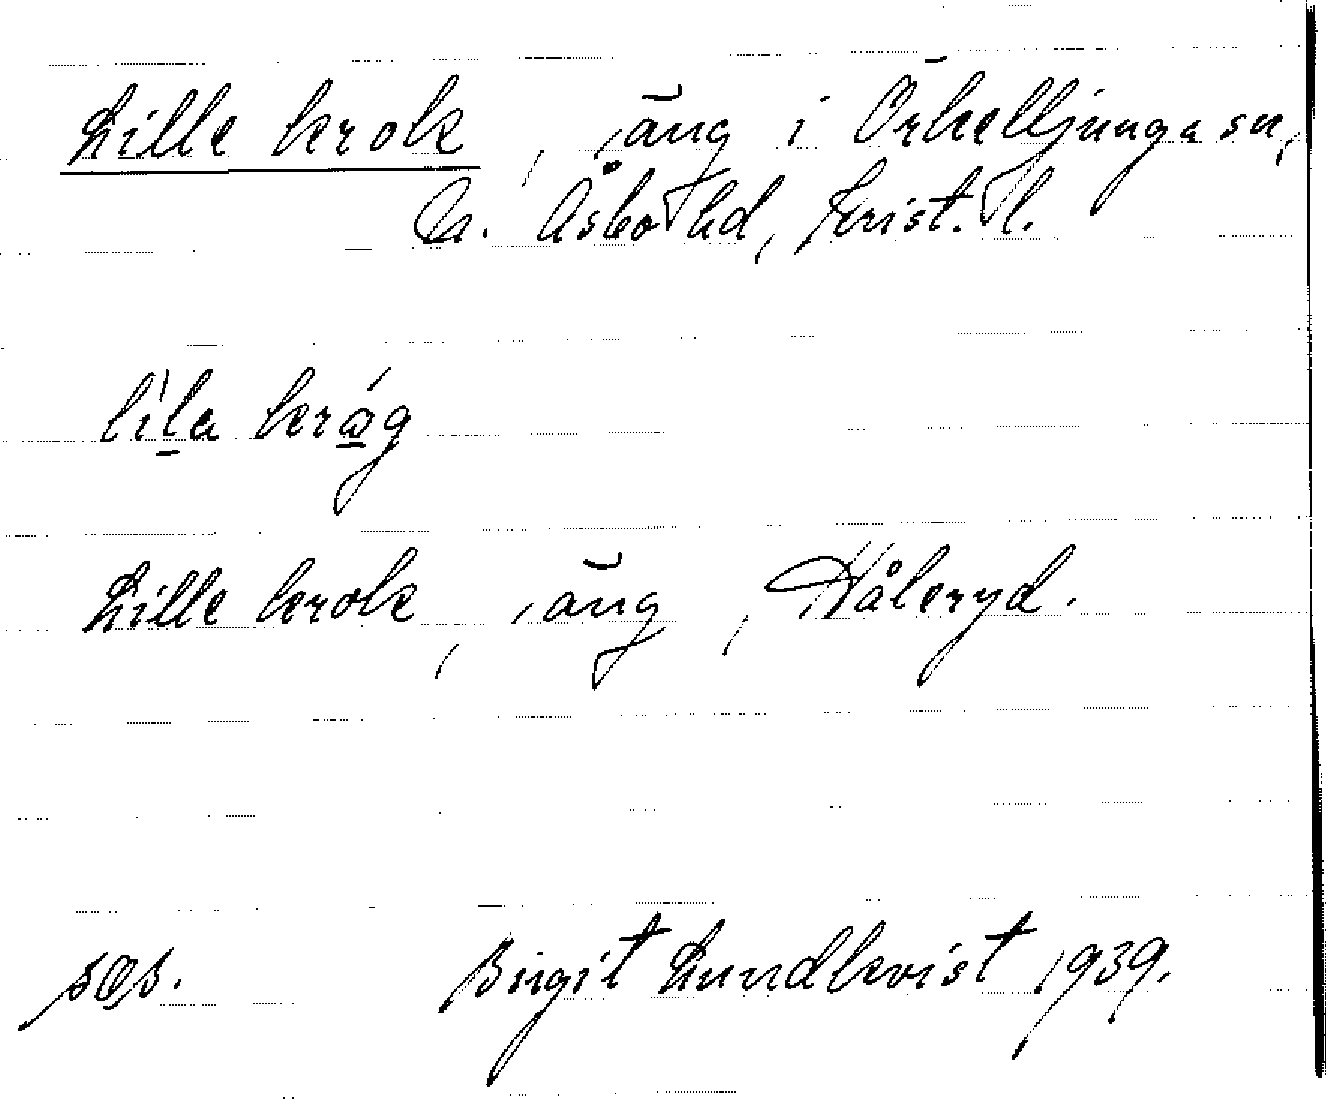 Lille krok, äng i Örkelljunga sn,
N. Åsbo hd, Krist. l.
lìla kråg
Lille krok, äng, Håleryd.
Birgit Lundkvist 1939.